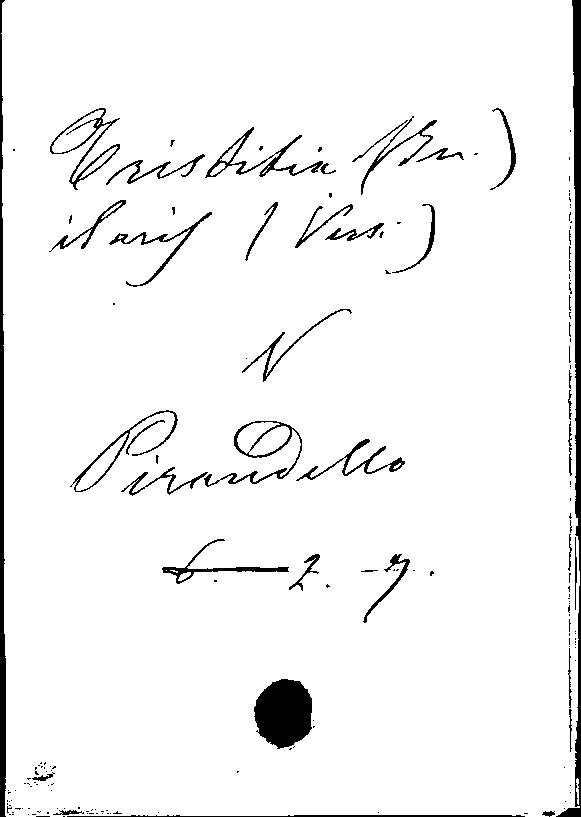 Tristitia (In.)
ilaris (Vers.)
V
Pirandello
6. 2. -7.